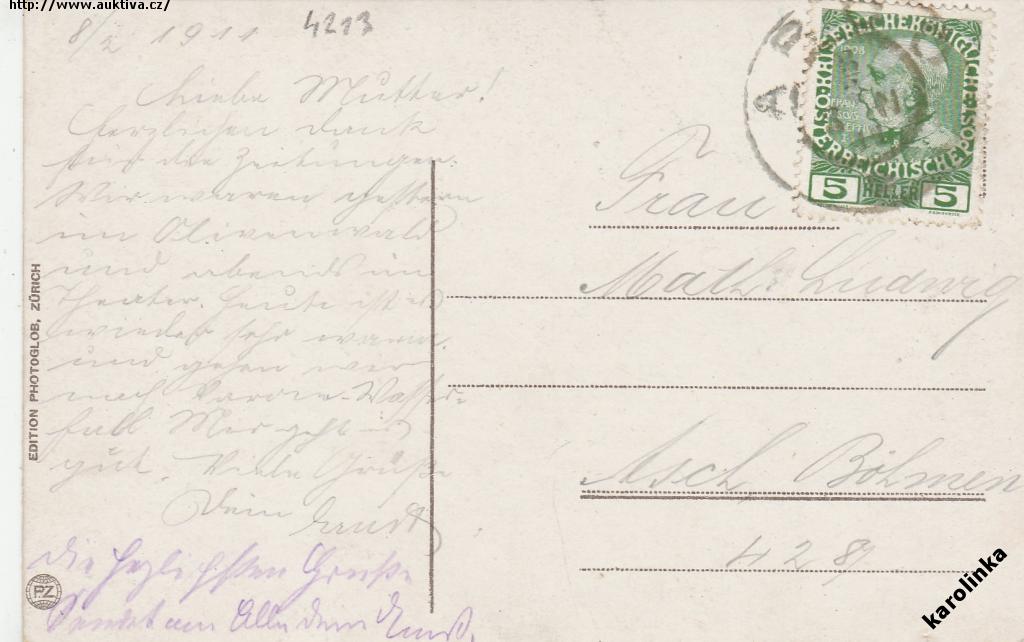 http://www.auktiva.cz/
8/2 1911
4213
Liebe Mutter!
Herzlichen Dank
für die Zeitungen.
Wir waren gestern
im Olivenwald
und abends im
Theater. Heute ist es
wieder sehr warm
und gehen wir
nach Varone-Wasser-
fall Mir geht es
gut. Viele Grüße
Dein Ernst
Die herzlichsten Grüße
sendet an Alle dein Ernst.
EDITION PHOTOGLOB, ZÜRICH
PZ
KAISERLICHEKÖNIGLICHE
ÖSTERREICHISCHE
1908
FRANZ
5 HELLER 5
Frau
Math. Ludwig
Asch Böhmen
karolinka